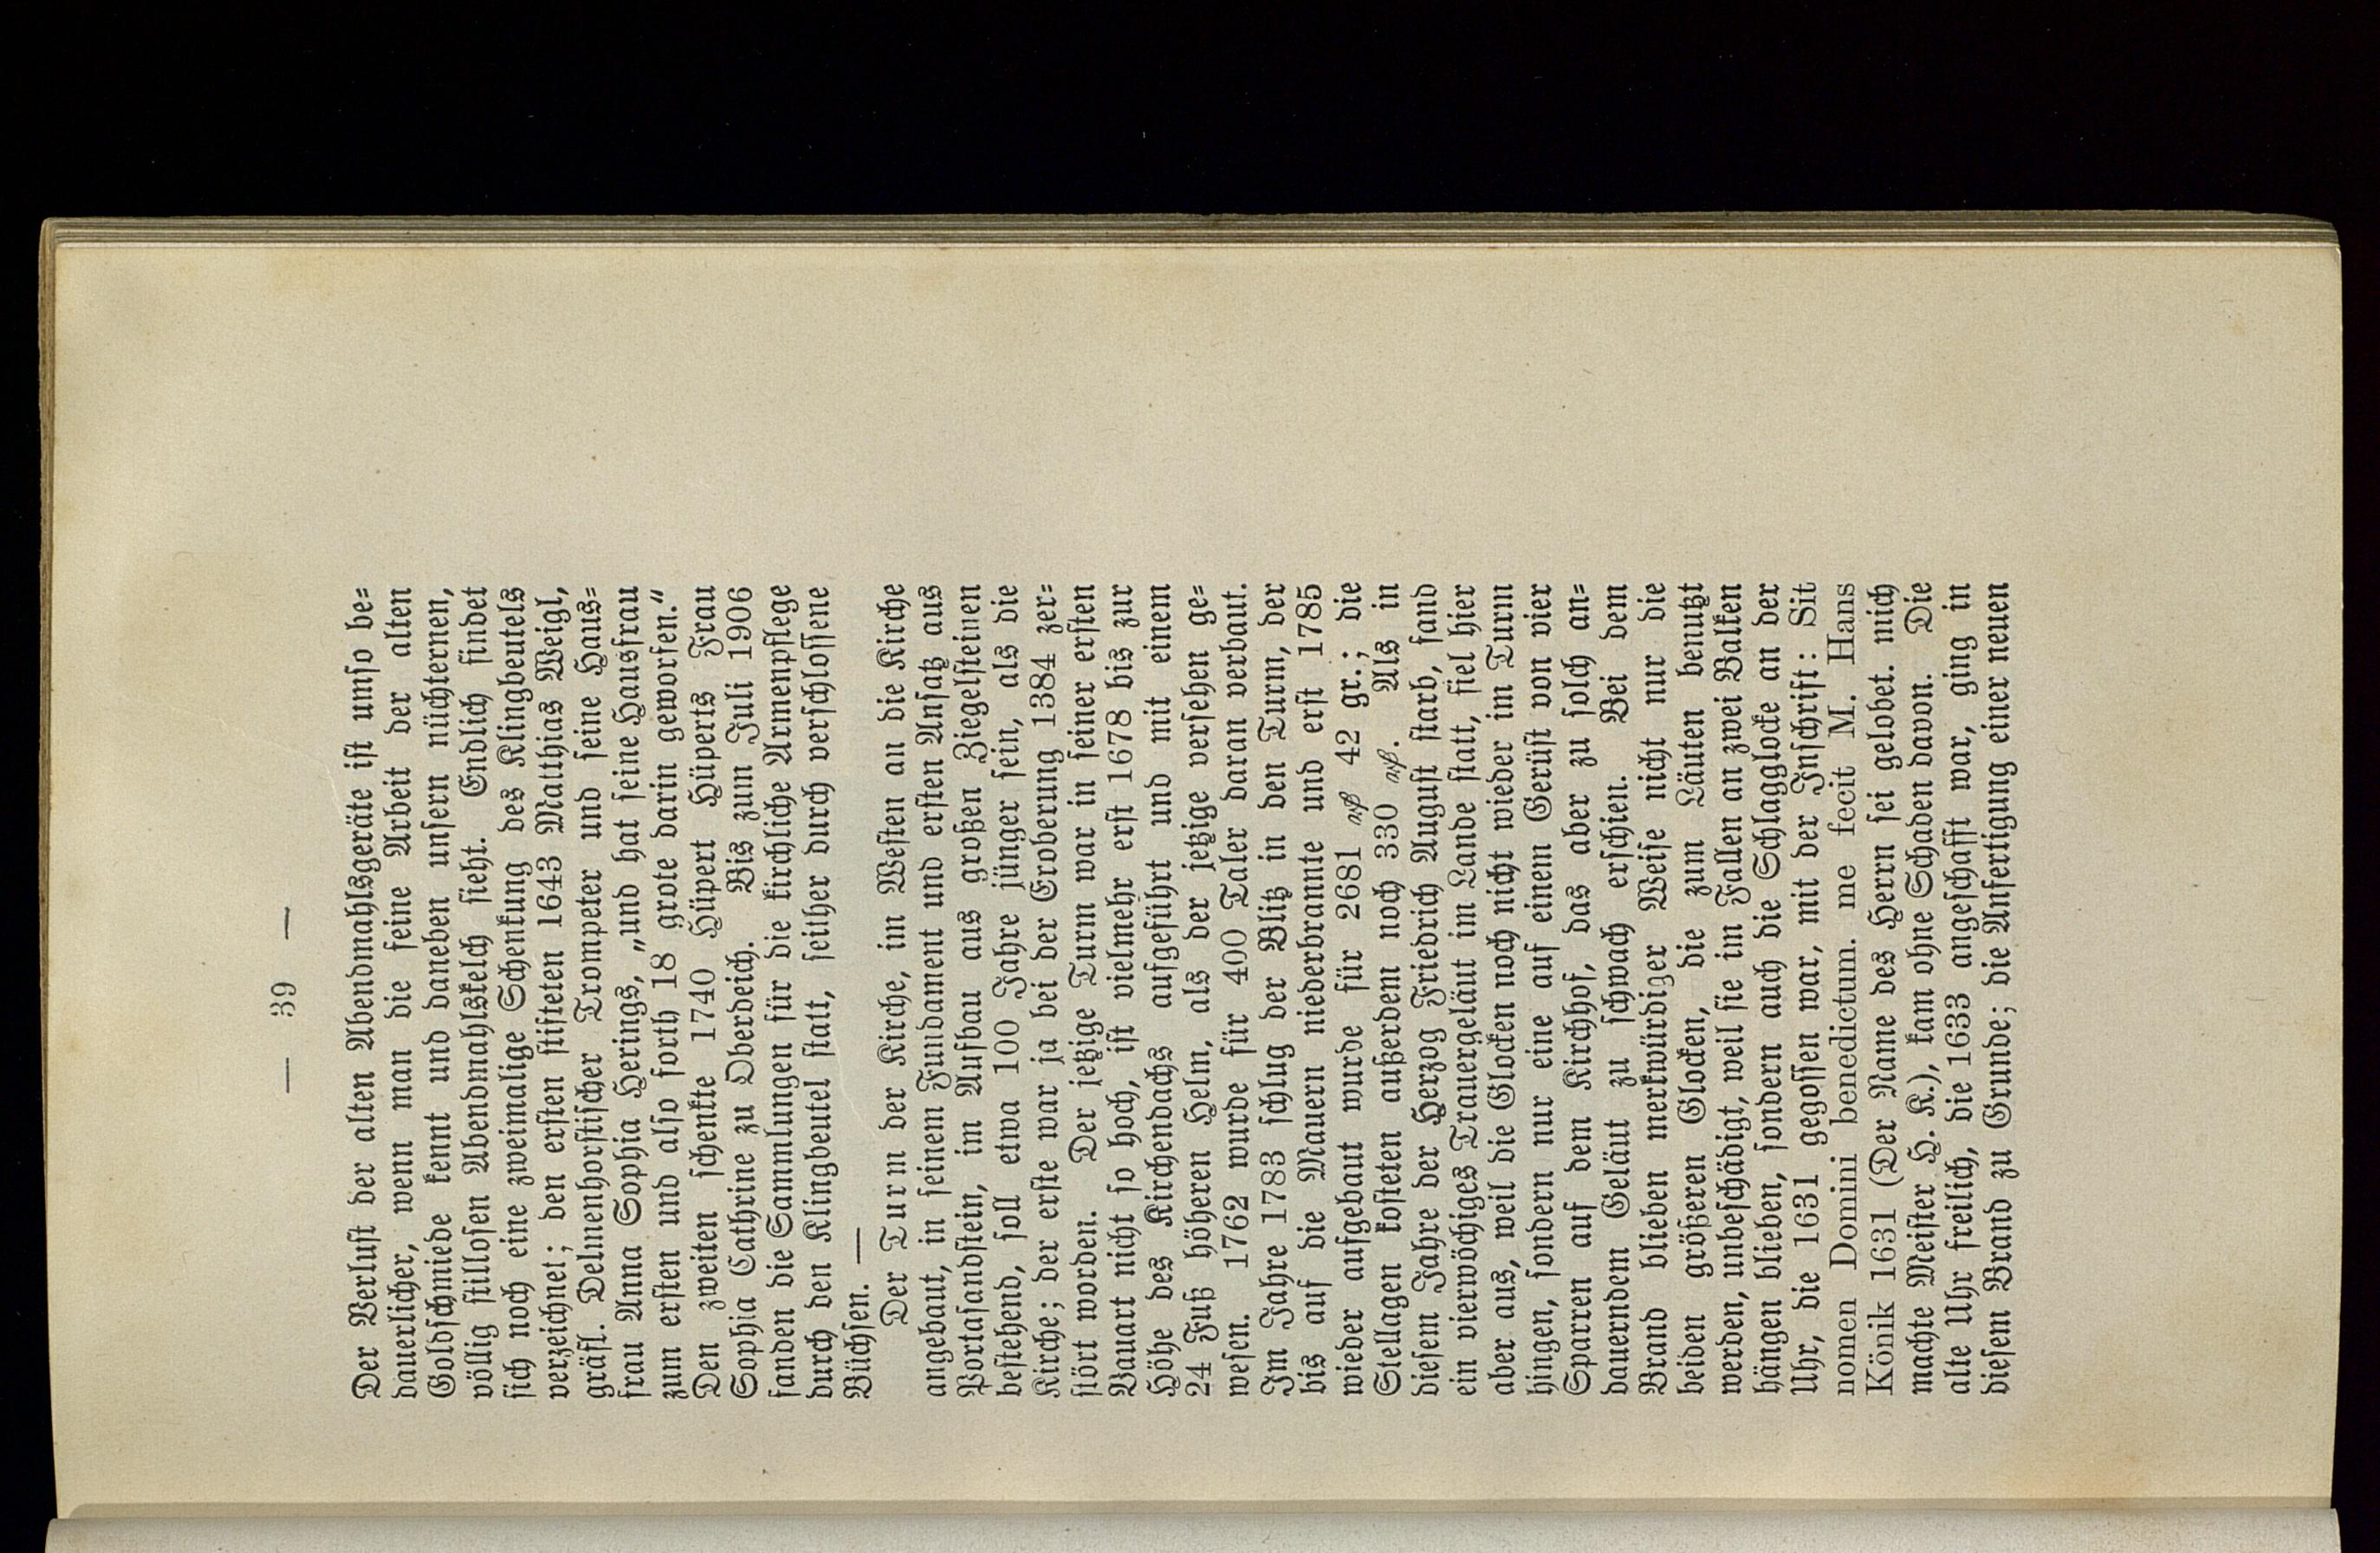 — 39 —
Der Verlust der alten Abendmahlsgeräte ist umso be-
dauerlicher, wenn man die feine Arbeit der alten
Goldschmiede kennt und daneben unsern nüchternen,
völlig stillosen Abendmahlskelch sieht. Endlich findet
sich noch eine zweimalige Schenkung des Klingbeutels
verzeichnet; den ersten stifteten 1643 Matthias Weigl,
gräfl. Delmenhorstischer Trompeter und seine Haus-
frau Anna Sophia Herings, „und hat seine Hausfrau
zum ersten und also forth 18 grote darin geworfen.“
Den zweiten schenkte 1740 Hüpert Hüperts Frau
Sophia Cathrine zu Oberdeich. Bis zum Juli 1906
fanden die Sammlungen für die kirchliche Armenpflege
durch den Klingbeutel statt, seither durch verschlossene
Büchsen. —
Der Turm der Kirche, im Westen an die Kirche
angebaut, in seinem Fundament und ersten Ansatz aus
Portasandstein, im Aufbau aus großen Ziegelsteinen
bestehend, soll etwa 100 Jahre jünger sein, als die
Kirche; der erste war ja bei der Eroberung 1384 zer-
stört worden. Der jetzige Turm war in seiner ersten
Bauart nicht so hoch, ist vielmehr erst 1678 bis zur
Höhe des Kirchendachs aufgeführt und mit einem
24 Fuß höheren Helm, als der jetzige versehen ge-
wesen. 1762 wurde für 400 Taler daran verbaut.
Im Jahre 1783 schlug der Blitz in den Turm, der
bis auf die Mauern niederbrannte und erst 1785
wieder aufgebaut wurde für 2681 ₰ 42 gr.; die
Stellagen kosteten außerdem noch 330 ₰. Als in
diesem Jahre der Herzog Friedrich August starb, fand
ein vierwöchiges Trauergeläut im Lande statt, fiel hier
aber aus, weil die Glocken noch nicht wieder im Turm
hingen, sondern nur eine auf einem Gerüst von vier
Sparren auf dem Kirchhof, das aber zu solch an-
dauerndem Geläut zu schwach erschien. Bei dem
Brand blieben merkwürdiger Weise nicht nur die
beiden größeren Glocken, die zum Läuten benutzt
werden, unbeschädigt, weil sie im Fallen an zwei Balken
hängen blieben, sondern auch die Schlagglocke an der
Uhr, die 1631 gegossen war, mit der Inschrift: Sit
nomen Domini benedictum. me fecit M. Hans
Könik 1631 (Der Name des Herrn sei gelobet. mich
machte Meister H. K.), kam ohne Schaden davon. Die
alte Uhr freilich, die 1633 angeschafft war, ging in
diesem Brand zu Grunde; die Anfertigung einer neuen